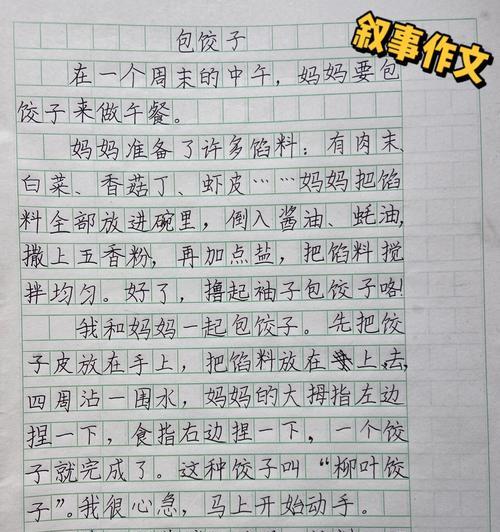 包饺子
叙事作文
在一个周末的中午，妈妈要包
饺子来做午餐。
妈妈准备了许多馅料：有肉末、
白菜、香菇丁、虾皮……妈妈把馅
料全部放进碗里，倒入酱油、蚝油，
撒上五香粉，再加点盐，把馅料搅
拌均匀。好了，撸起袖子包饺子咯！
我和妈妈一起包饺子。先把饺
子皮放在手上，把馅料放在上去，
四周沾一围水，妈妈的大拇指左边
捏一下，食指右边捏一下，一个饺
子就完成了。这种饺子叫“柳叶饺
子”。我很心急，马上开始动手。